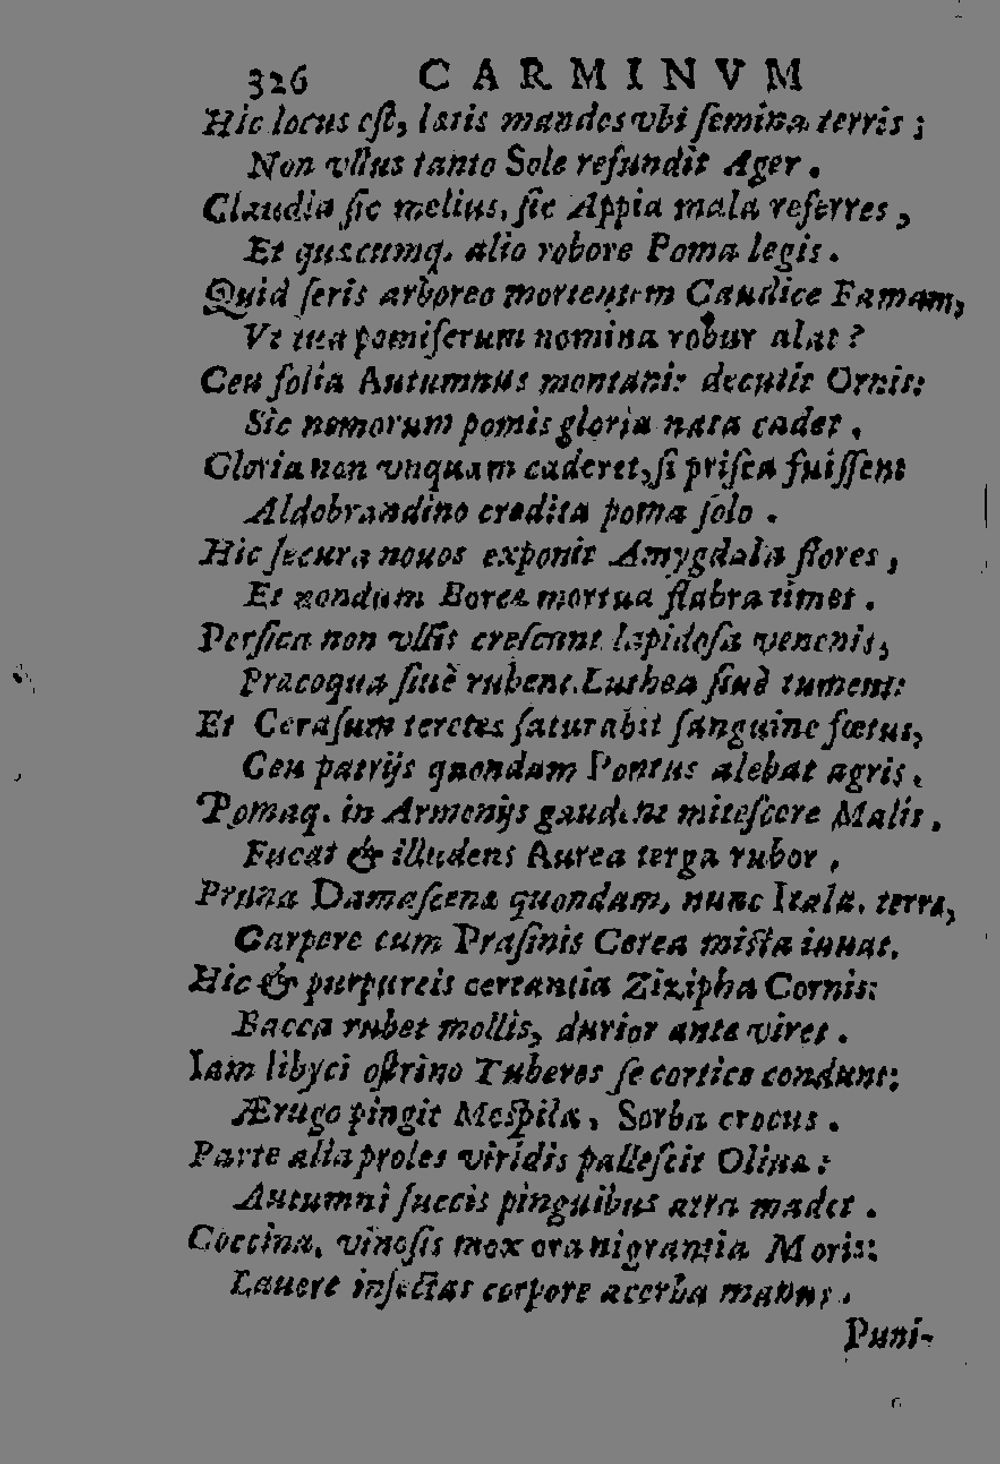 326 CARMINVM
Hic locus est, latis mandes vbi semina terris;
Non vllus tanto Sole refundit Ager.
Claudia sic melius, sic Appia mala referres,
Et quæcumq. alio robore Poma legis.
Quid seris arboreo morientem Caudice Famam,
Vt tua pomiferum nomina robur alat?
Ceu folia Autumnus montanis decutit Ornis:
Sic nemorum pomis gloria nata cadet.
Gloria non vnquam caderet, si prisca fuissent
Aldobrandino credita poma solo.
Hic secura nouos exponit Amygdala flores,
Et nondum Boreæ mortua flabra timet.
Persica non vllis crescunt lapidosa venenis,
Præcoqua siuè rubent, Luthea siuè tument:
Et Cerasum teretes saturabit sanguine fœtus,
Ceu patrijs quondam Pontus alebat agris.
Pomaq. in Armenijs gaudent mitescere Malis.
Fucat & illudens Aurea terga rubor.
Pruna Damascena quondam, nunc Itala, terra,
Carpere cum Prasinis Cerea mista iuuat.
Hic & purpureis certantia Zizipha Cornis:
Bacca rubet mollis, durior ante viret.
Iam libyci ostrino Tuberes se cortice condunt:
Ærugo pingit Mespila, Sorba crocus.
Parte alia proles viridis pallescit Oliuæ:
Autumni succis pinguibus atra madet.
Coccina, vinosis mox ora nigrantia Moris:
Lauere infectas corpore acerba manus.
Puni-